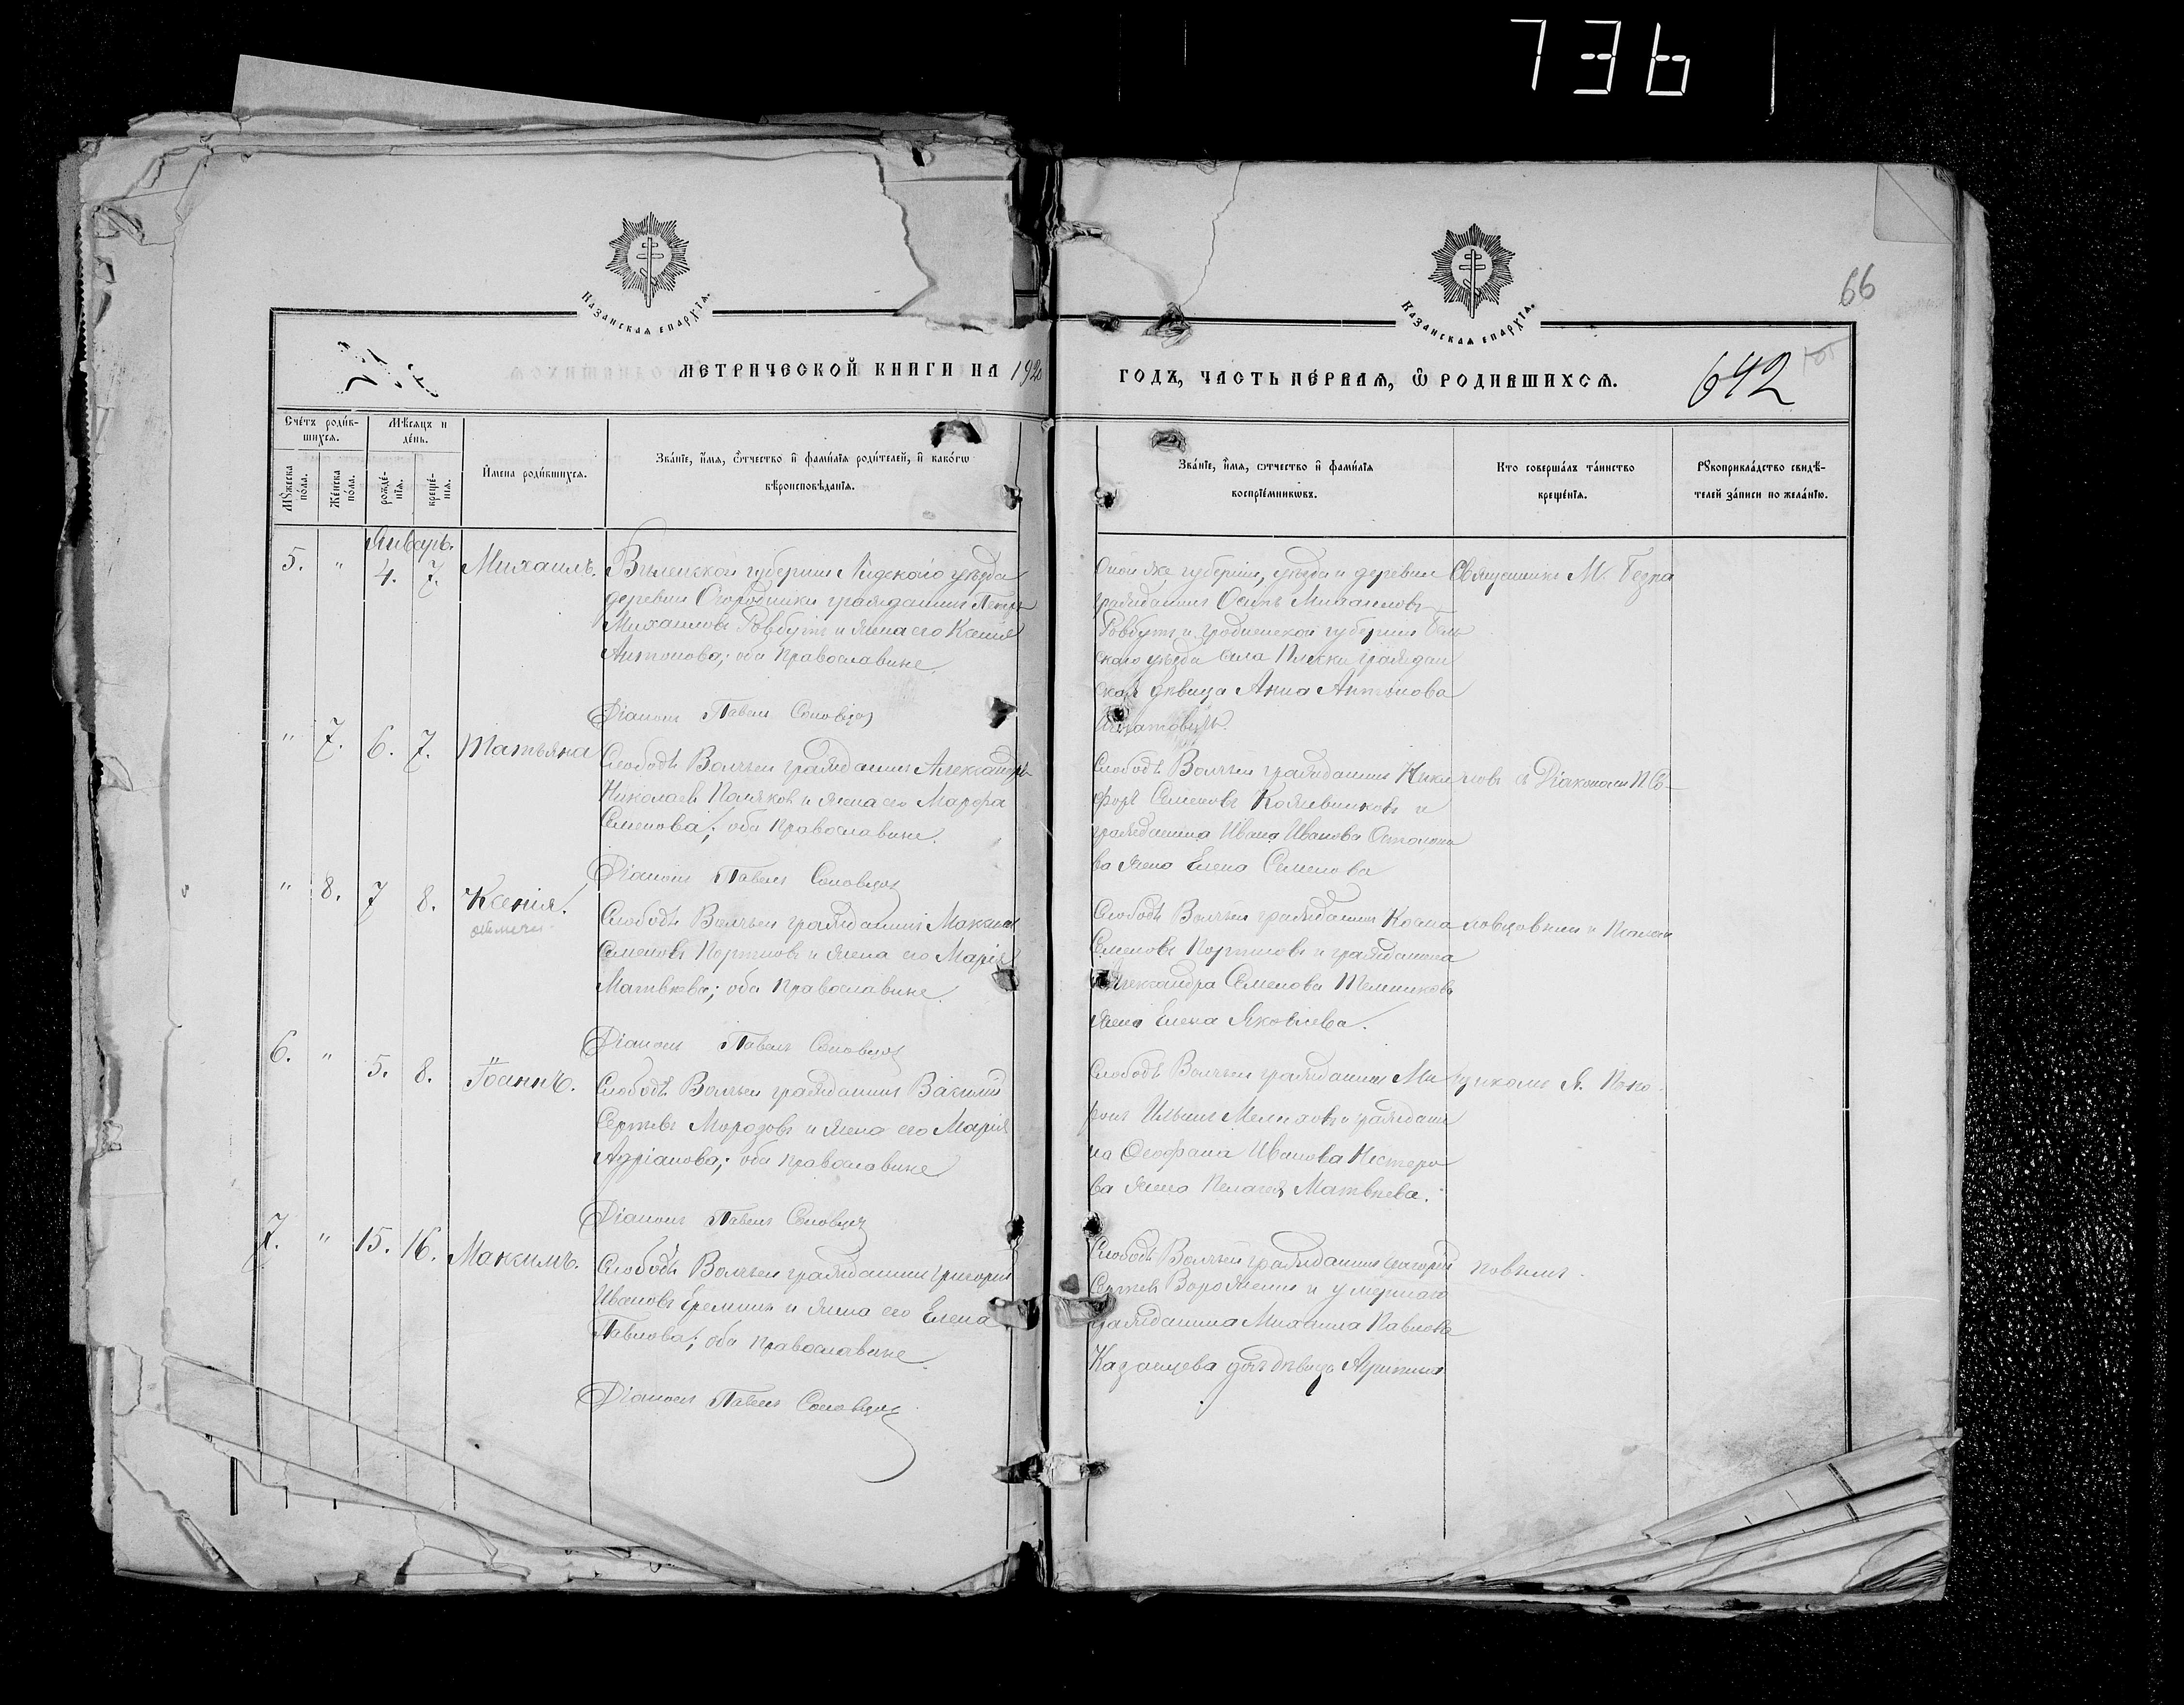 736
66
КАЗАНСКАЯ ЕПАРХІЯ.
КАЗАНСКАЯ ЕПАРХІЯ.
МЕТРИЧЕСКОЙ КНИГИ НА 1920
ГОДЪ, ЧАСТЬ ПЕ́РВАЯ, Ѽ РОДИВШИХСЯ.
642
Сче́тъ роди́в-
шихся.
Мѣ́сяцъ и
де́нь.
Мꙋ́жеска
по́ла.
Же́нска
по́ла.
рожде́-
нїя.
креще́-
нїя.
И҆мена роди́вшихся.
Зва́нїе, и҆́мя, ѻ҆́тчество и҆ фами́лїя роди́телей, и҆ како́гѡ
вѣроисповѣ́данїя.
Зва́нїе, и҆́мя, ѻтчество и҆ фами́лїя
воспрїе́мникѡвъ.
Кто соверша́лъ та́инство
креще́нїя.
Рꙋкоприкла́дство свидѣ́-
телей за́писи по жела́нїю.
Январь.
5. " 4. 7. Михаилъ.
Виленской губерніи Лидскаго уѣзда
деревни Огородники гражданинъ Петръ
Михаиловъ Ровбутъ и жена его Ксенія
Антонова; оба православные.
Діаконъ Павелъ Соловцов
Оной же губерніи, уѣзда и деревни
гражданинъ Осипъ Михаиловъ
Ровбутъ и Гродненской губерніи Бѣль
скаго уѣзда села Плески граждан
ская дѣвица Анна Антонова
Священникъ М. Безра
" 7. 6. 7. Татьяна
Слободы Волчьей гражданинъ Александръ
Николаевъ Поляковъ и жена его Марфа
Семенова; оба православные.
Діаконъ Павелъ Соловцов
Слободы Волчьей гражданинъ Ники
форъ Семеновъ Кожевниковъ и
гражданина Ивана Ивановa
ва жена Елена Семенова
съ Діакономъ П. Со-
" 8. 7 8. Ксенія.
Слободы Волчьей гражданинъ Максимъ
Семеновъ Портновъ и жена его Марія
Матвѣева; оба православные.
Діаконъ Павелъ Соловцов
Слободы Волчьей гражданинъ Козма
Семеновъ Портновъ и гражданина
Александра Семенова
жена Елена Яковлева.
ловцовымъ и Псалом
6. " 5. 8. Іоаннъ.
Слободы Волчьей гражданинъ Василій
Сергѣевъ Морозовъ и жена его Марія
Адріанова; оба православные
Діаконъ Павелъ Соловцов
Слободы Волчьей гражданинъ Ми
ронъ Ильинъ Мелиховъ и граждани
на Ѳеофана Иванова Нестеро
ва жена Пелагея Матвѣева.
щикомъ Я. Попо-
7. " 15. 16. Максимъ.
Слободы Волчьей гражданинъ Григорій
Ивановъ Ереминъ и жена его Елена
Павлова; оба православные.
Діаконъ Павелъ Соловцов
Слободы Волчьей гражданинъ
Сергѣевъ и умершаго
гражданина Михаила Павлова
Казанцева дочь дѣвица
повымъ.